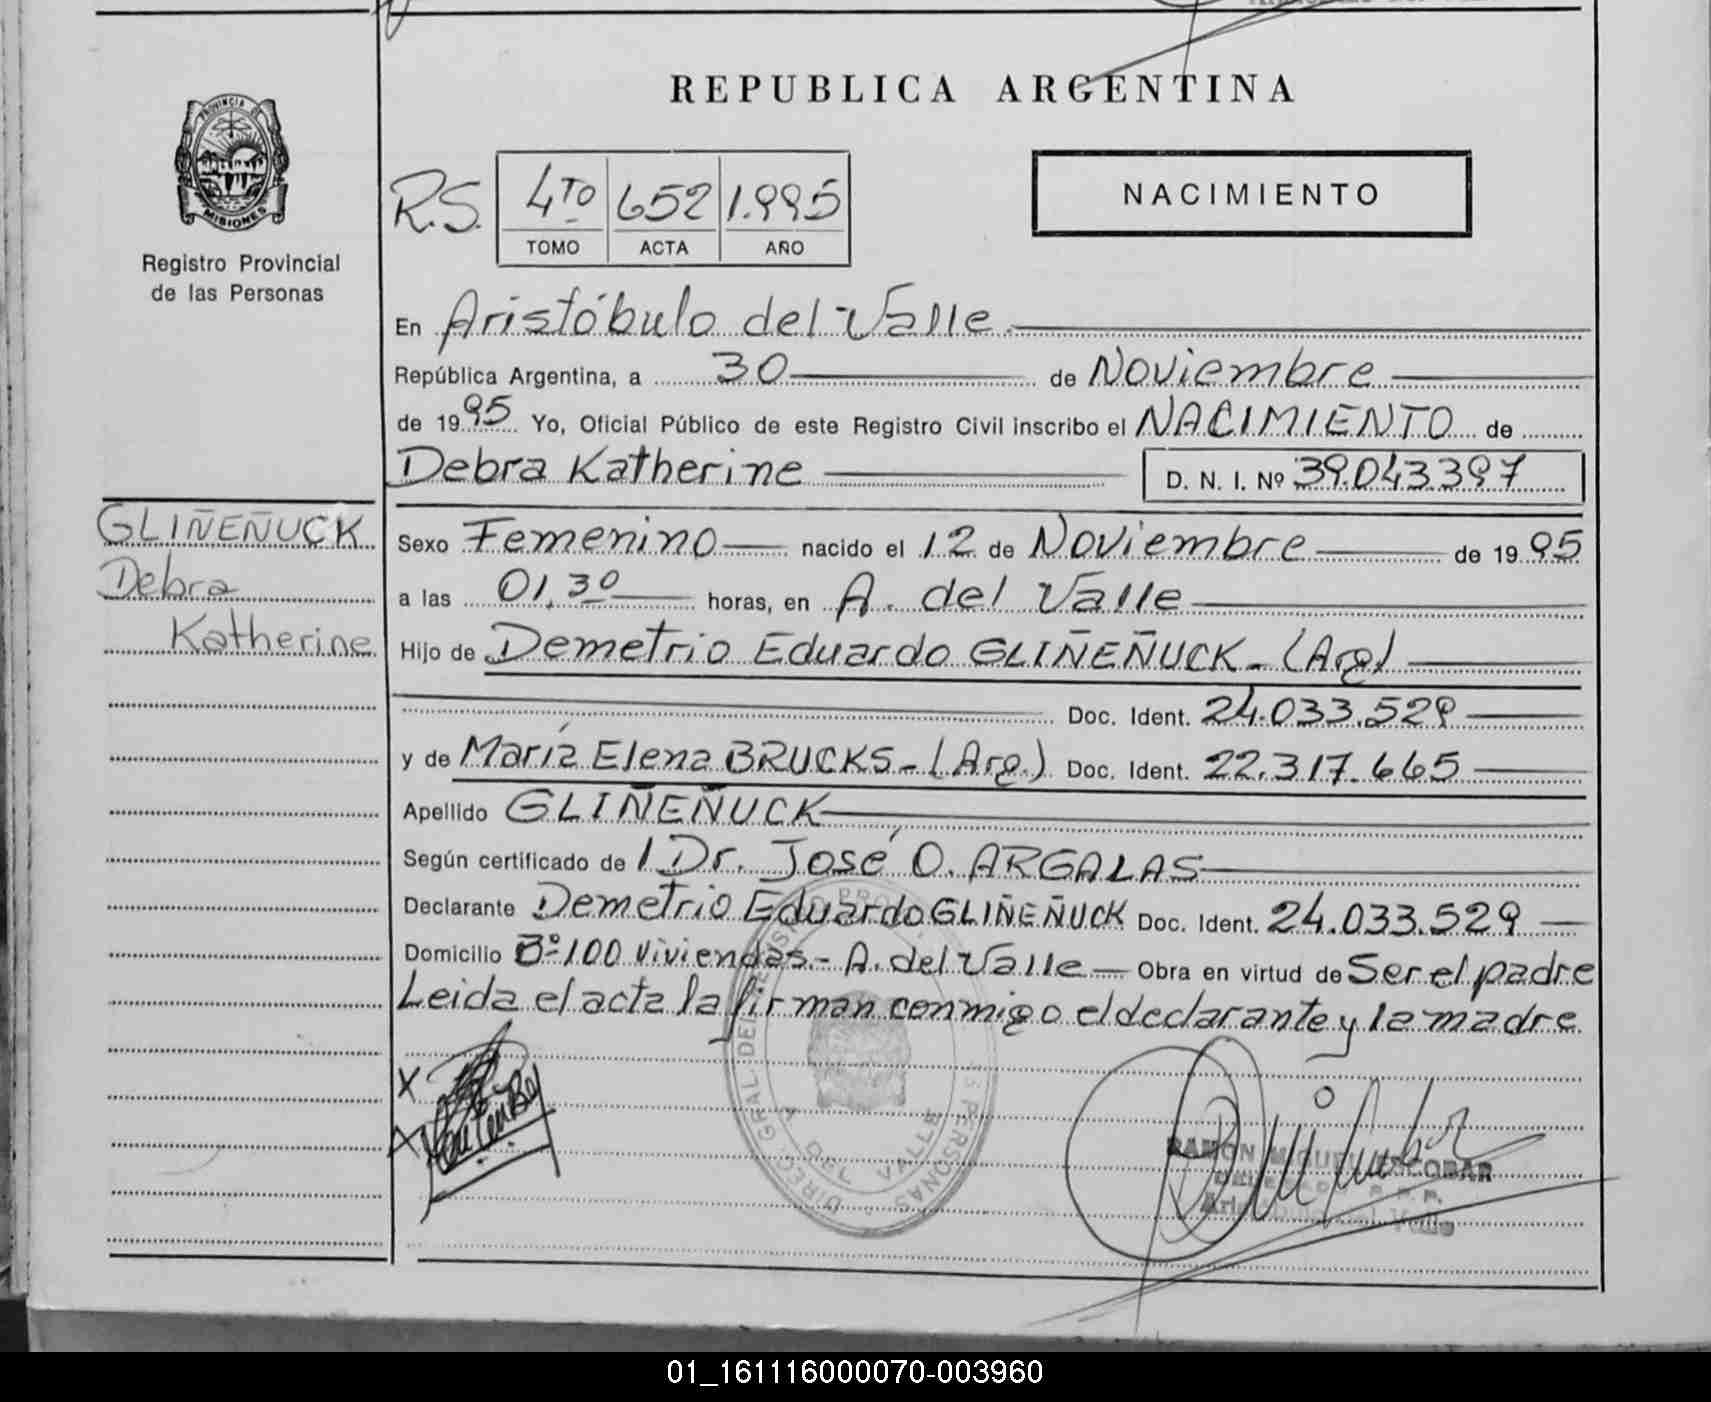 REPUBLICA ARGENTINA
PROVINCIA DE
MISIONES
Registro Provincial
de las Personas
R.S. 4TO 652 1.995
TOMO ACTA AÑO
NACIMIENTO
En Aristóbulo del Valle
República Argentina, a 30 de Noviembre
de 1995 Yo, Oficial Público de este Registro Civil inscribo el NACIMIENTO de
Debra Katherine D. N. I. Nº 39.043.397
GLIÑEÑUCK
Debra
Katherine
Sexo Femenino nacido el 12 de Noviembre de 1995
a las 01,30 horas, en A. del Valle
Hijo de Demetrio Eduardo GLIÑEÑUCK - (Arg)
Doc. Ident. 24.033.529
y de María Elena BRUCKS - (Arg.) Doc. Ident. 22.317.665
Apellido GLIÑEÑUCK
Según certificado de l Dr. José O. ARGALAS
Declarante Demetrio Eduardo GLIÑEÑUCK Doc. Ident. 24.033.529
Domicilio Bº 100 Viviendas - A. del Valle - Obra en virtud de Ser el padre
Leida el acta la firman conmigo el declarante y la madre
X
X
DIREC. GRAL DEL PERSONAS
A. DEL VALLE
RAMON MIGUEL ESCOBAR
DELEGADO R.P.P.
Aristóbulo del Valle
01_161116000070-003960